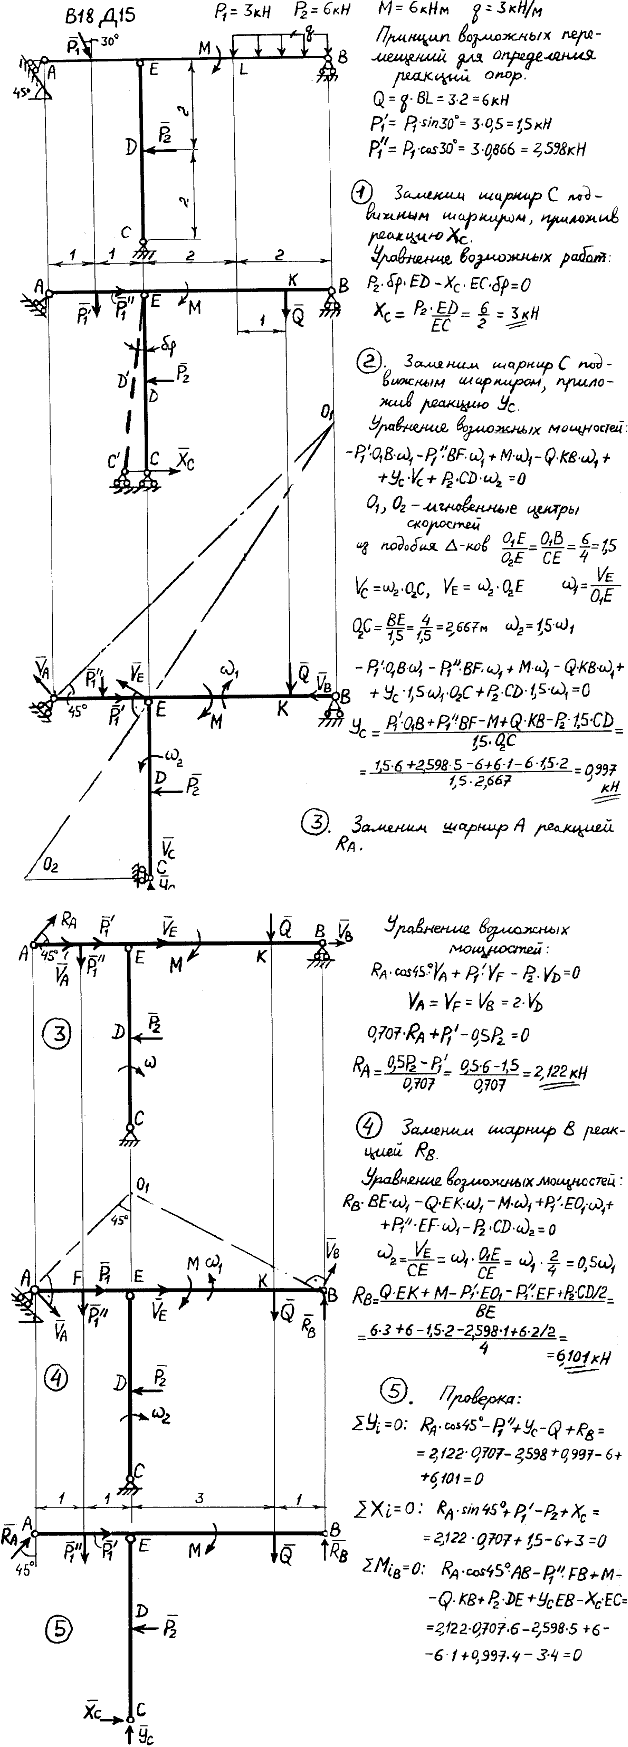 В18 Д15
P₁ = 3кН P₂ = 6кН M = 6кНм q = 3кН/м
Принцип возможных пере-
мещений для определения
реакций опор.
Q = q·BL = 3·2 = 6кН
P₁' = P₁·sin30° = 3·0,5 = 1,5кН
P₁'' = P₁·cos30° = 3·0,866 = 2,598кН
P̄₁ 30° M q
A E L B
45°
D P̄₂ 2
C 2
1 1 2 2
① Заменим шарнир C под-
вижным шарниром, приложив
реакцию Xc.
Уравнение возможных работ:
P₂·δφ·ED − Xc·EC·δφ = 0
Xc = P₂·ED/EC = 6/2 = 3кН
A P̄₁' P̄₁'' E M K Q̄ B
1
δφ
D' D P̄₂
C' C X̄c
②. Заменим шарнир C под-
вижным шарниром, прило-
жив реакцию Yc.
Уравнение возможных мощностей:
−P₁'·O₁B·ω₁ − P₁''·BF·ω₁ + M·ω₁ − Q·KB·ω₁ +
+ Yc·Vc + P₂·CD·ω₂ = 0
O₁, O₂ – мгновенные центры
скоростей
из подобия Δ-ков O₁E/O₂E = O₁B/CE = 6/4 = 1,5
Vc = ω₂·O₂C, VE = ω₂·O₂E ω₁ = VE/O₁E
O₂C = BE/1,5 = 4/1,5 = 2,667м ω₂ = 1,5·ω₁
−P₁'·O₁B·ω₁ − P₁''·BF·ω₁ + M·ω₁ − Q·KB·ω₁ +
+ Yc·1,5ω₁·O₂C + P₂·CD·1,5ω₁ = 0
Yc = P₁'·O₁B + P₁''·BF − M + Q·KB − P₂·1,5·CD/1,5·O₂C =
= 1,5·6 + 2,598·5 − 6 + 6·1 − 6·1,5·2/1,5·2,667 = 0,997
кН
O₁
V̄A P̄₁'' V̄E ω₁ Q̄ V̄B
45° P̄₁' E M K B
ω₂
D P̄₂
O₂ V̄c
C
③. Заменим шарнир A реакцией
RA.
RA P̄₁' V̄E Q̄ B V̄B
A 45° V̄A P̄₁'' E M K
③ D P̄₂
ω
C
Уравнение возможных
мощностей:
RA·cos45°·VA + P₁'·VF − P₂·VD = 0
VA = VF = VB = 2·VD
0,707·RA + P₁' − 0,5P₂ = 0
RA = 0,5P₂ − P₁'/0,707 = 0,5·6 − 1,5/0,707 = 2,122кН
④ Заменим шарнир B реак-
цией RB.
Уравнение возможных мощностей:
RB·BE·ω₁ − Q·EK·ω₁ − M·ω₁ + P₁'·EO₁·ω₁ +
+ P₁''·EF·ω₁ − P₂·CD·ω₂ = 0
ω₂ = VE/CE = ω₁·O₁E/CE = ω₁·2/4 = 0,5ω₁
RB = Q·EK + M − P₁'·EO₁ − P₁''·EF + P₂·CD/2/BE =
= 6·3 + 6 − 1,5·2 − 2,598·1 + 6·2/2/4 =
= 6,101кН
O₁
45°
A F P̄₁ E M ω₁ K V̄B B
V̄A P̄₁'' V̄E Q̄ R̄B
④ D P̄₂
ω₂
C
1 1 3 1
⑤. Проверка:
ΣYi = 0: RA·cos45° − P₁'' + Yc − Q + RB =
= 2,122·0,707 − 2,598 + 0,997 − 6 +
+ 6,101 = 0
ΣXi = 0: RA·sin45° + P₁' − P₂ + Xc =
= 2,122·0,707 + 1,5 − 6 + 3 = 0
ΣMiB = 0: RA·cos45°·AB − P₁''·FB + M −
− Q·KB + P₂·DE + Yc·EB − Xc·EC =
= 2,122·0,707·6 − 2,598·5 + 6 −
− 6·1 + 0,997·4 − 3·4 = 0
R̄A A P̄₁'' P̄₁' E M Q̄ B R̄B
45°
⑤ D P̄₂
X̄c C
Ȳc